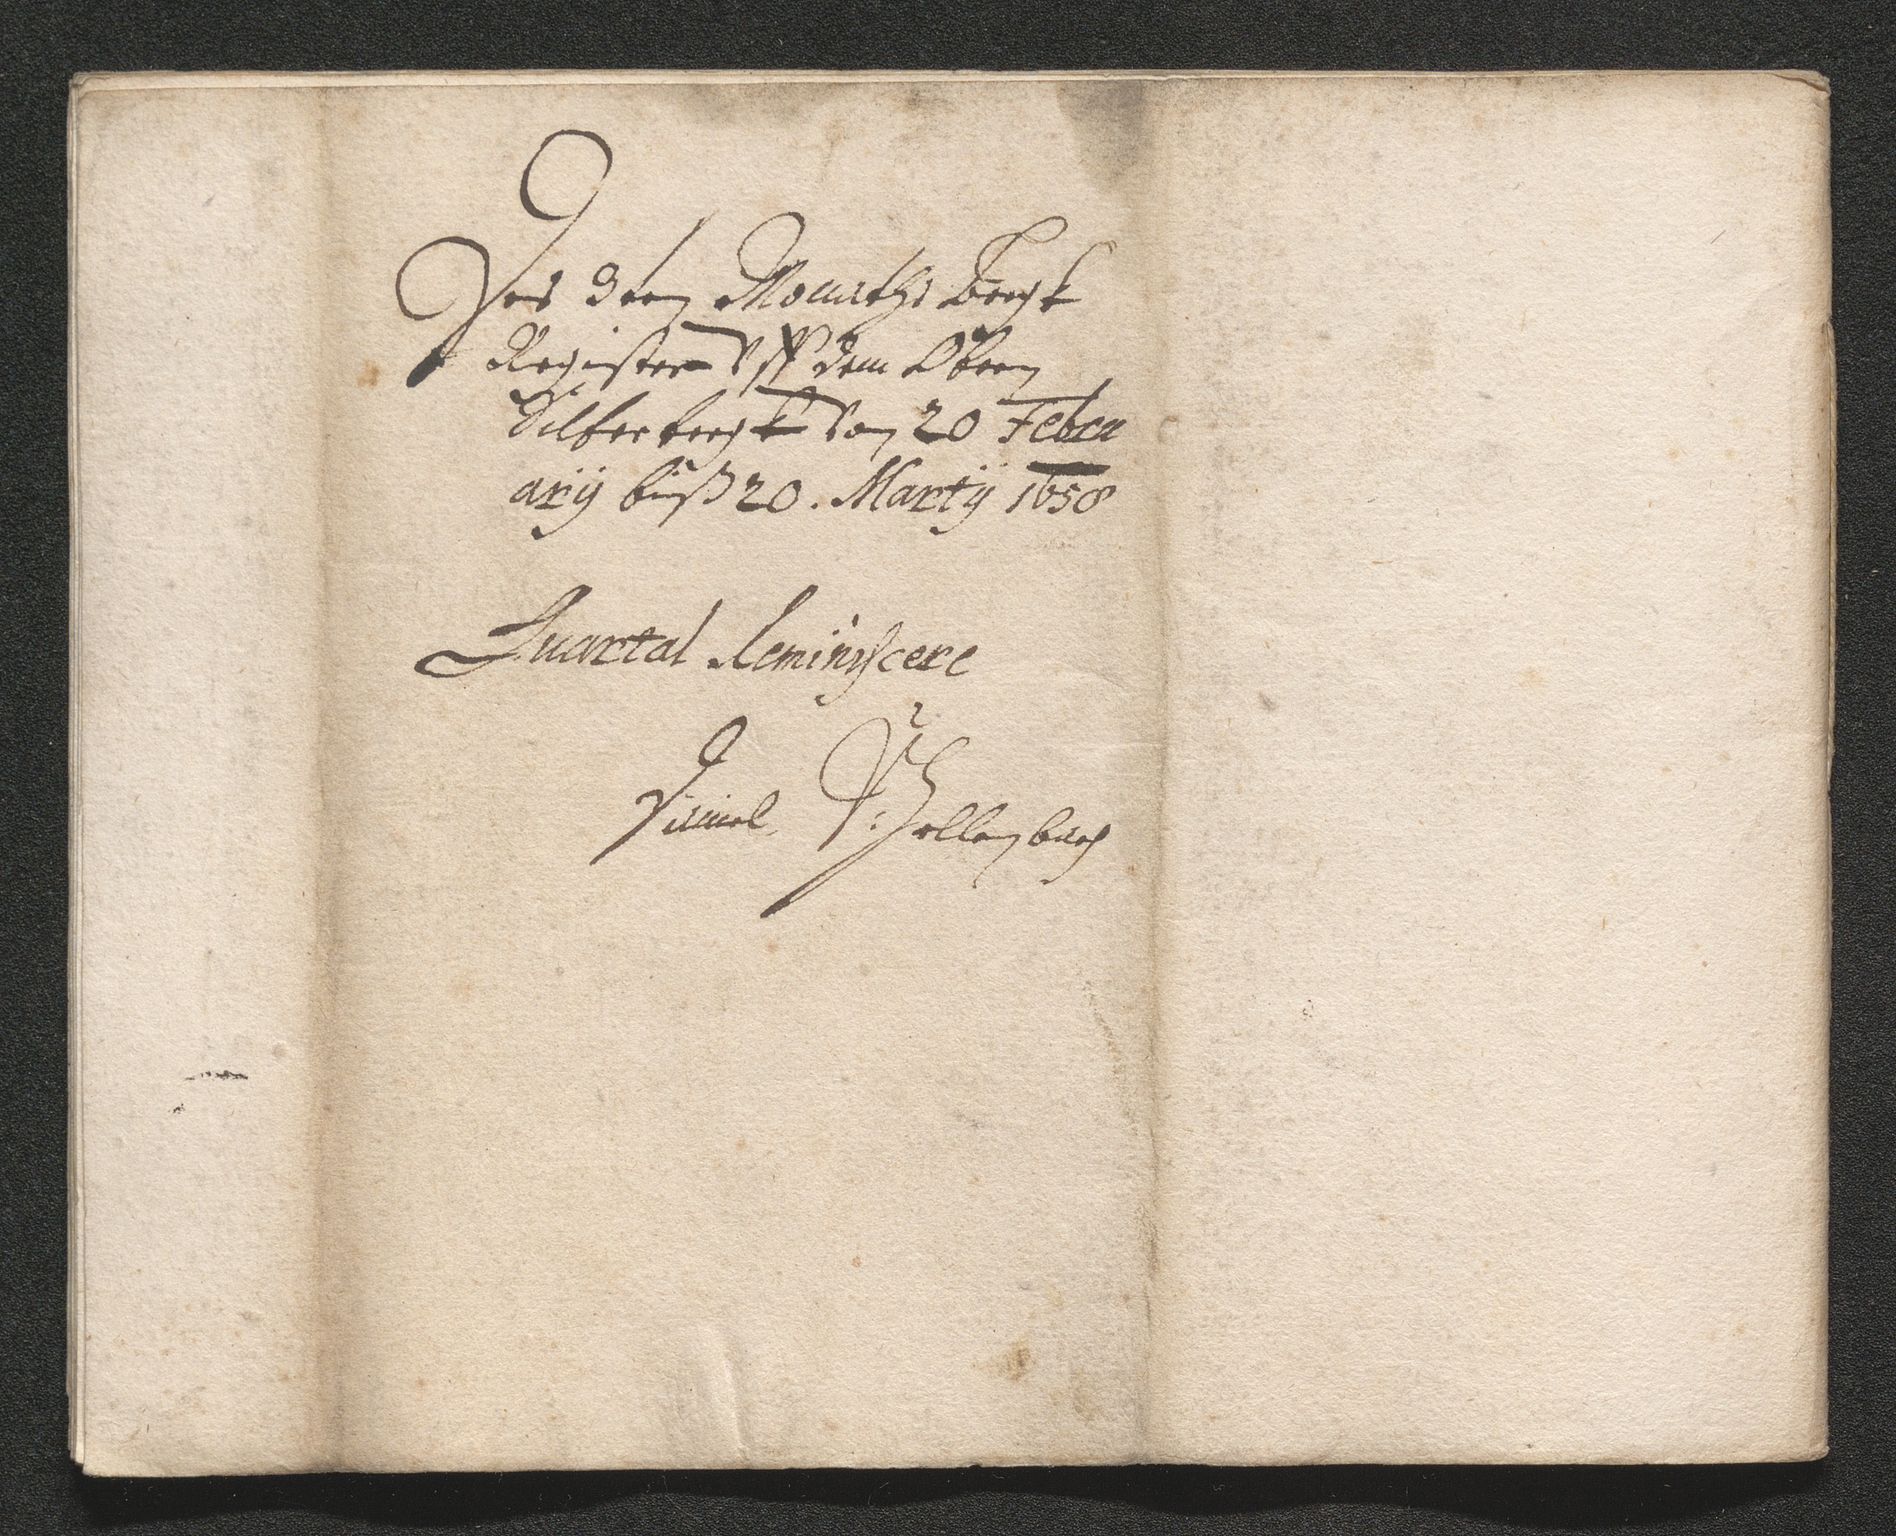 Das dem Monaths bergk
Register Uff dem Obern
Silberbergk Von 20 Febru
arÿ biß 20. Martÿ 1658
Quartal Reminiscere
Hollenbach